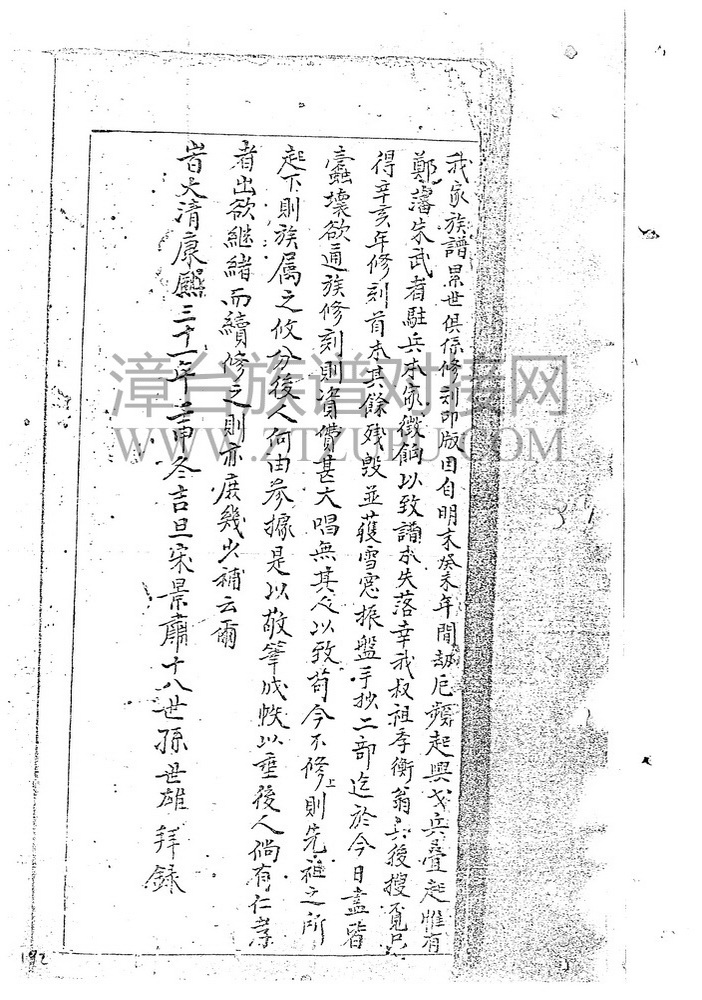 我家族譜累世俱係修刻印版因自明末癸未年間劫厄頻起興戈兵疊起惟有
鄭藩朱武者駐兵本家徵餉以致譜本失落幸我叔祖季衡翁具後搜覓只
得辛亥年修刻首本其餘殘毀並蘐雪窓振盤手抄二部迄於今日盡皆
蠹壞欲通族修刻則資費甚大唱無其人以致苟今不修上則先祖之所
起下則族属之攸分後人何由參據是以敬筆成帙以垂後人倘有仁孝
者出欲継緒而續修之則亦庶幾少補云爾
峕大清康熙三十一年壬申冬吉旦宋景肅十八世孫世雄拜録
漳台族谱对接网
WWW.ZTZUPU.COM
192